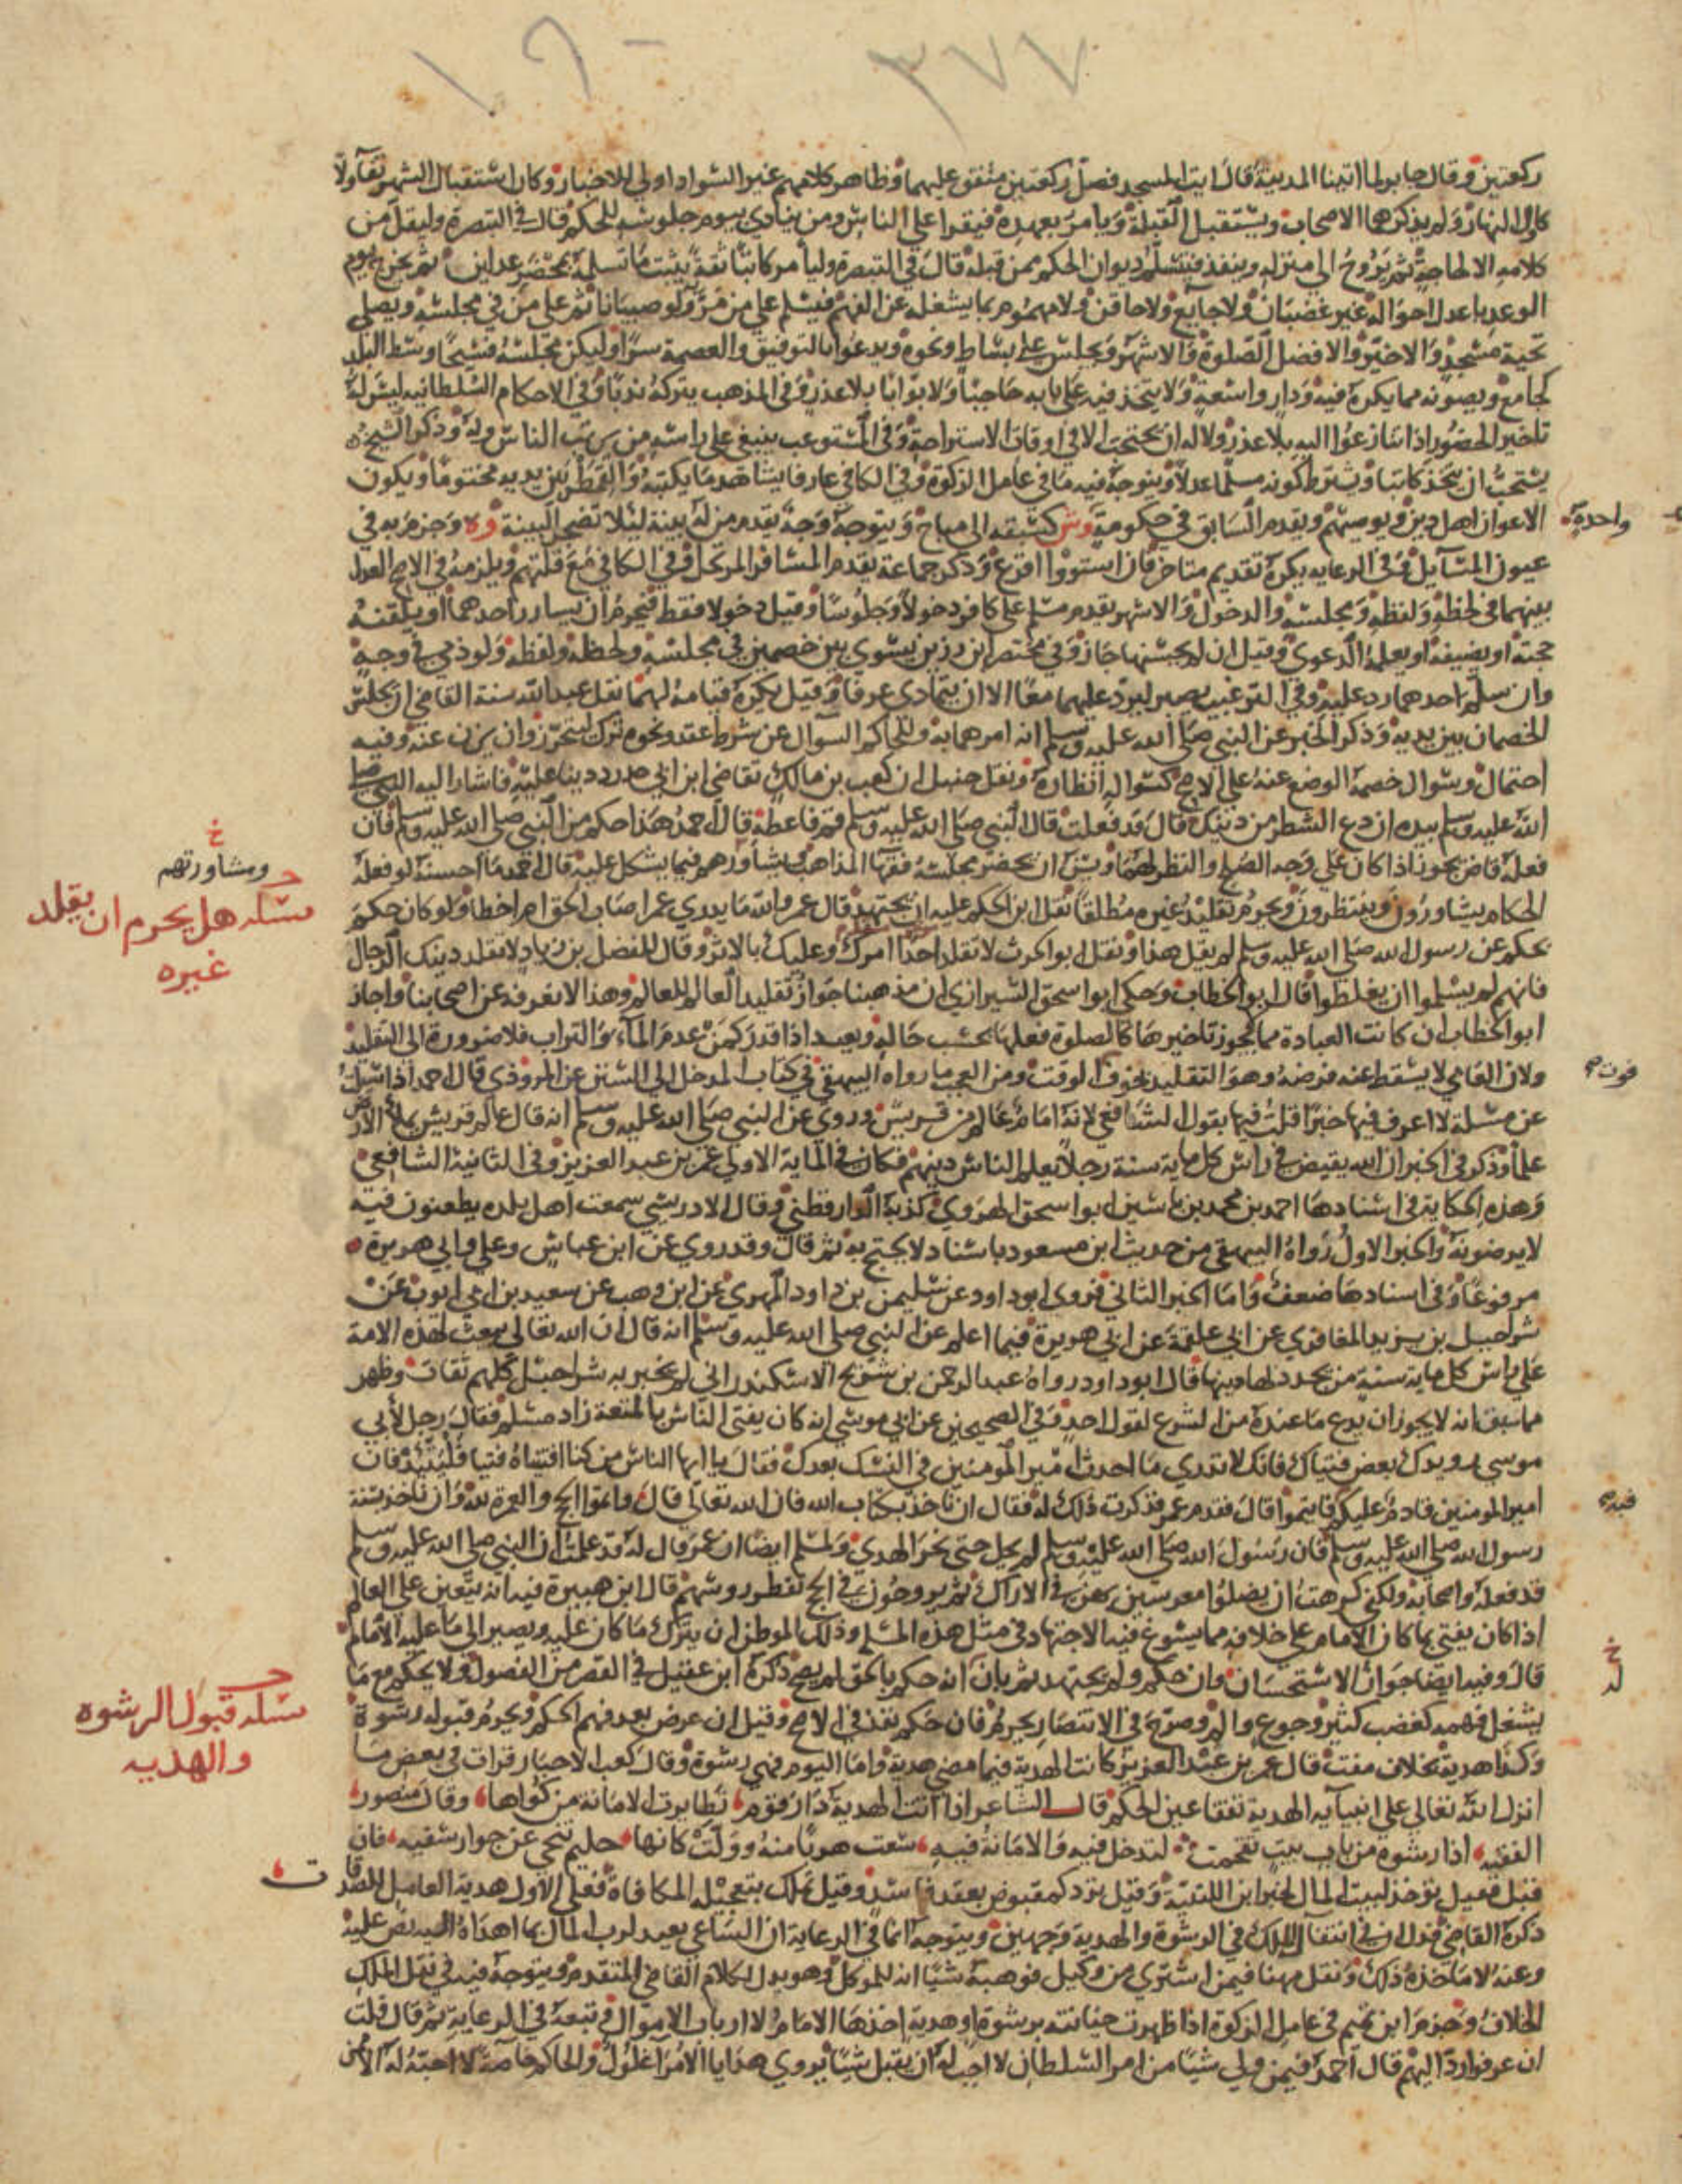 ٣٧٧
١٩٠
ركعتين وقال جابر لما اتينا المدينة قال ايت المسجد فصل ركعتين متفق عليهما وظاهر كلامهم غير السواد اولى للاخبار وكان استقبال الشهر تفآولا
كاول النهار ولم يذكرهما الاصحاب ويستقبل القبلة ويامر بعهده فيقرا على الناس ومن ينادي بيوم جلوسه للحكم قال في التبصرة وليقل من
كلامه الا لحاجة ثم يروح الى منزله وينفذ فيتسلم ديوان الحكم ممن قبله قال في التبصرة وليامر كاتبا ثقة يثبت ما تسلمه بمحضر عدلين ثم يخرج يوم
الوعد باعدل احواله غير غضبان ولا جايع ولا حاقن ولا مهموم بما يشغله عن الفهم فيسلم على من مر ولو صبيانا ثم على من في مجلسه ويصلي
تحية مسجد والا خير والافضل الصلوة والاشهر ويجلس على بساط ونحوه ويدعوا بالتوفيق والعصمة سرا وليكن مجلسه فسيحا وسط البلد
كجامع ويصونه مما يكره فيه ودار واسعة ولا يتخذ فيه على بابه حاجبا ولا بوابا بلا عذر وفي المذهب يتركه ندبا وفي الاحكام السلطانيه ليس له
تاخير الحضور اذا تنازعوا اليه بلا عذر ولا له ان يحتجب الا في اوقات الاستراحة وفي المستوعب ينبغي على راسه من يرتب الناس وله وذكر الشيخ
يستحب ان يتخذ كاتبا ويشترط كونه مسلما عدلا ويتوجه فيه ما في عامل الزكوة وفي الكافي عارفا يشاهد ما يكتبه والقمطر بين يديه مختوما ويكون
الاعوان اهل دين ويوصيهم ويقدم السابق في حكومة وش كسبقه الى مباح ويتوجه وجه يقدم من له بينة لئلا تضجر البينة وه وجزم به في
عيون المسايل وفي الرعايه يكره تقديم متاخر فان استووا اقرع وذكر جماعة يقدم المسافر المرتحل وفي الكافي مع قلتهم ويلزمه في الاصح العدل
بينهما في لحظه ولفظه ومجلسه والدخول والاشهر يقدم مسلم على كافر دخولا وجلوسا وقيل دخولا فقط فيحرم ان يسارر احدهما او يلقنه
حجته او يضيفه او يعلمه الدعوى وقيل ان لم يحسنها جاز وفي مختصر ابن رزين يسوي بين خصمين في مجلسه ولحظه ولفظه ولو ذمي في وجه
وان سلم احدهما رد عليه وفي الترغيب يصبر ليرد عليهما معا الا ان يتمادى عرفا وقيل يكره قيامه لهما نقل عبد الله سنة القاضي ان يجلس
الخصمان بين يديه وذكر الخبر عن النبي صلى الله عليه وسلم انه امر هما به وللحاكم السوال عن شرط عقد ونحوه ترك لتحرز وان يزن عنه وفيه
احتمال وسوال خصمه الوضع عنه على الاصح كسواله انظاره ونقل حنبل ان كعب بن مالك تقاضى ابن ابي حدرد دينا عليه فاشار اليه النبي صلى
الله عليه وسلم بيده ان دع الشطر من دينك قال قد فعلت قال النبي صلى الله عليه وسلم قم فاعطه قال احمد هذا حكم من النبي صلى الله عليه وسلم فان
فعله قاض يجوز اذا كان على وجه الصلح والنظر لهما ويسن ان يحضر مجلسه فقها المذاهب ويشاورهم فيما يشكل عليه قال احمد ما احسنه لو فعله
الحكام يشاورون وينتظرون ويحرم تقليد غيره مطلقا نقل ابن الحكم عليه ان يجتهد قال عمر والله ما يدري عمر اصاب الحق ام اخطا ولو كان حكم
بحكم عن رسول الله صلى الله عليه وسلم لم يقل هذا ونقل ابو الحرث لا تقلد احدا امرك وعليك بالاثر وقال للفضل بن زياد لا تقلد دينك الرجال
فانهم لم يسلموا ان يغلطوا قال ابو الخطاب وحكى ابو اسحق الشيرازي ان مذهبنا جواز تقليد العالم للعالم وهذا لا نعرفه عن اصحابنا واجاز
ابو الخطاب ان كانت العبادة مما لا يجوز تاخيرها كالصلوة فعلها بحسب حاله ويعيد اذا قدر كمن عدم الماء والتراب فلا ضرورة الى التقليد
ولان العامي لا يسقط عنه فرضه وهو التقليد بخوف الوقت ومن العجب ما رواه البيهقي في كتاب المدخل الى السنن عن المروذي قال احمد اذا سيلت
عن مسلة لا اعرف فيها خبرا قلت فيها بقول الشافعي لانه امام عالم من قريش وروي عن النبي صلى الله عليه وسلم انه قال عالم قريش يملأ الارض
علما وذكر في الخبر ان الله يقيض في راس كل ماية سنة رجلا يعلم الناس دينهم فكان في الماية الاولى عمر بن عبد العزيز وفي الثانية الشافعي
وهذه الحكاية في اسنادها احمد بن محمد بن ياسين ابو اسحق الهروي كذبه الدارقطني وقال الادريسي سمعت اهل بلده يطعنون فيه
لا يرضونه والخبر الاول رواه البيهقي من حديث ابن مسعود باسناد لا يحتج به ثم قال وقد روي عن ابن عباس وعلي وابي هريرة
مرفوعا وفي اسنادها ضعف واما الخبر الثاني فروى ابو داود عن سليمن بن داود المهري عن ابن وهب عن سعيد بن ابي ايوب عن
شراحيل بن يزيد المعافري عن ابي علقمة عن ابي هريرة فيما اعلم عن النبي صلى الله عليه وسلم انه قال ان الله تعالى يبعث لهذه الامة
على راس كل ماية سنة من يجدد لها دينها قال ابو داود رواه عبد الرحمن بن شريح الاسكندراني لم يخبر به شراحيل كلهم ثقات وظهر
مما سبق انه لا يجوز ان يدع ما عنده من الشرع لقول احد وفي الصحيحين عن ابي موسى انه كان يفتي الناس بالمتعة زاد مسلم فقال رجل لابي
موسى رويدك بعض فتياك فانك لا تدري ما احدث امير المومنين في النسك بعدك فقال يا ايها الناس من كنا افتيناه فتيا فليتئد فان
امير المومنين قادم عليكم فايتموا قال فقدم عمر فذكرت ذلك له فقال ان ناخذ بكتاب الله فان الله تعالى قال واتموا الحج والعمرة لله وان ناخذ بسنة
رسول الله صلى الله عليه وسلم فان رسول الله صلى الله عليه وسلم لم يحل حتى نحر الهدي ولمسلم ايضا ان عمر قال له قد علمت ان النبي صلى الله عليه وسلم
قد فعله واصحابه ولكني كرهت ان يضلوا معرسين بهن في الاراك ثم يروحون في الحج تقطر روسهم قال ابن هبيرة فيه انه يتعين على العالم
اذا كان يفتي بما كان الامام على خلافه مما يسوغ فيه الاجتهاد في مثل هذه المسلة وذلك الموطن ان يترك ما كان عليه ويصير الى ما عليه الامام
قال وفيه ايضا جواز الاستحسان وان حكم ولم يجتهد ثم بان انه حكم بالحق لم يصح ذكره ابن عقيل في القصر من الفصول ولا يحكم مع ما
يشغل فهمه كغضب كثير وجوع والم وصرح في الانتصار يحرم فان حكم نفذ في الاصح وقيل ان عرض بعد فهم الحكم ويحرم قبوله رشوة
وكذا هدية بخلاف مفت قال عمر بن عبد العزيز كانت الهدية فيما مضى هدية واما اليوم فهي رشوة وقال كعب الاحبار قرات في بعض ما
انزل الله تعالى على انبيايه الهدية تفقا عين الحكم قال الشاعر اذا اتت الهدية دار قوم تطايرت الامانة من كواها وقال منصور
الفقيه اذا رشوة من باب بيت تقحمت لتدخل فيه والامانة فيه سعت هربا منه وولت كانها حليم تنحى عن جوار سفيه فان
قبل فقيل توخذ لبيت المال لخبر ابن اللتبية وقيل ترد كمقبوض بعقد فاسد وقيل تملك بتعجيله المكافاة فعلى الاول هدية العامل للصدقات
ذكره القاضي فدل ان في انتقال الملك في الرشوة والهدية وجهين ويتوجه انما في الرعاية ان الساعي يعيد لرب المال ما اهداه اليه نص عليه
وعنه لا ماخذه ذلك ونقل مهنا فيمن اشترى من وكيل فوهبه شيا انه للموكل وهو يدل لكلام القاضي المتقدم ويتوجه فيه في نقل الملك
الخلاف وجزم ابن تميم في عامل الزكوة اذا ظهرت خيانته برشوة او هدية اخذها الامام لا ارباب الاموال وتبعه في الرعاية ثم قال قلت
ان عرفوا رد اليهم قال احمد فيمن ولي شيا من امر السلطان لا احب له ان يقبل شيا يروى هدايا الامرا غلول والحاكم خاصة لا احبه له الا من
واحدة
خ
ومشاورتهم
مسله هل يحرم ان يقلد
غيره
فوت
فيه
خ
له
مسله قبول الرشوه
والهديه